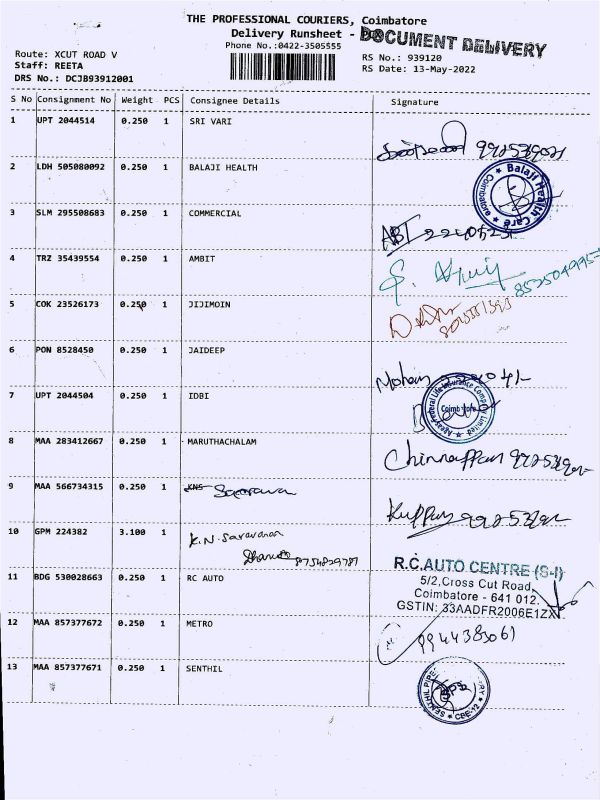 THE PROFESSIONAL COURIERS, Coimbatore
Delivery Runsheet - DOCUMENT DELIVERY
Phone No.:0422-3505555
Route: XCUT ROAD V
Staff: REETA
DRS No.: DCJB93912001
RS No.: 939120
RS Date: 13-May-2022
S No Consignment No Weight PCS Consignee Details Signature
1 UPT 2044514 0.250 1 SRI VARI
2 LDH 505080092 0.250 1 BALAJI HEALTH
Balaji Health Care Coimbatore
3 SLM 295508683 0.250 1 COMMERCIAL
ABT
4 TRZ 35439554 0.250 1 AMBIT
5 COK 23526173 0.250 1 JIJIMOIN
6 PON 8528450 0.250 1 JAIDEEP
Mohan
7 UPT 2044504 0.250 1 IDBI
Ageas Federal Life Insurance Company Limited
Coimbatore
8 MAA 283412667 0.250 1 MARUTHACHALAM
Chinnappan
9 MAA 566734315 0.250 1 KNS Saravana
10 GPM 224382 3.100 1 K.N. Saravanan
8754829787
11 BDG 530028663 0.250 1 RC AUTO
R.C.AUTO CENTRE (S-I)
5/2,Cross Cut Road,
Coimbatore - 641 012.
GSTIN: 33AADFR2006E1ZX
12 METRO MAA 857377672 0.250 1
9944383061
13 MAA 857377671 0.250 1 SENTHIL
CBE-12